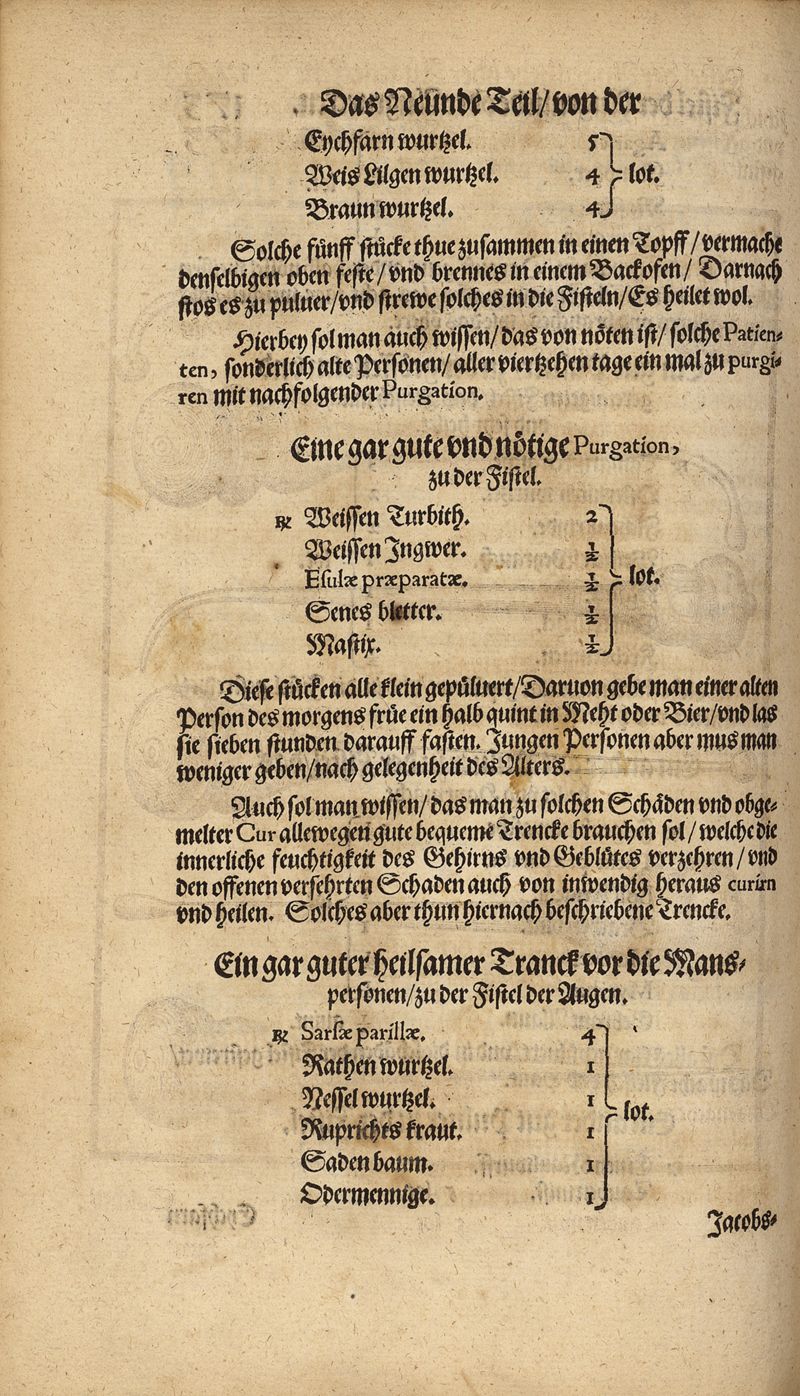 Das Neunde Teil/ von der
Eychfarn wurtzel. 5
Weis Lilgen wurtzel. 4 lot.
Braun wurtzel. 4
Solche fünff stücke thue zusammen in einen Topff/ vermache
denselbigen oben feste/ vnd brennes in einem Backofen/ Darnach
stos es zu puluer/ vnd strewe solches in die Fisteln/ Es heilet wol.
Hierbey sol man auch wissen/ das von nöten ist/ solche Patien-
ten, sonderlich alte Personen/ aller viertzehen tage ein mal zu purgi-
ren mit nachfolgender Purgation.
Eine gar gute vnd nötige Purgation,
zu der Fistel.
℞ Weissen Turbith. 2
Weissen Ingwer. ½
Esulæ præparatæ. ½ lot.
Senes bletter. ½
Mastix. ½
Diese stücken alle klein gepüluert/ Daruon gebe man einer alten
Person des morgens früe ein halb quint in Meht oder Bier/ vnd las
sie sieben stunden darauff fasten. Jungen Personen aber mus man
weniger geben/ nach gelegenheit des Alters.
Auch sol man wissen/ das man zu solchen Schäden vnd obge-
melter Cur allewegen gute bequeme Trencke brauchen sol/ welche die
innerliche feuchtigkeit des Gehirns vnd Geblütes verzehren/ vnd
den offenen versehrten Schaden auch von inwendig heraus curirn
vnd heilen. Solches aber thun hiernach beschriebene Trencke.
Ein gar guter heilsamer Tranck vor die Mans-
personen/ zu der Fistel der Augen.
℞ Sarsæ parillæ. 4
Rathen wurtzel. 1
Nessel wurtzel. 1
Ruprichts kraut. 1 lot.
Saden baum. 1
Odermennige. 1
Jacobs-